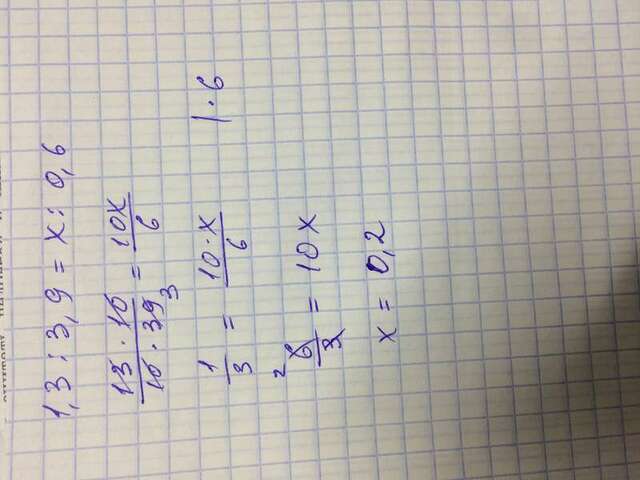 1,3 : 3,9 = x : 0,6
13 · 10 / 10 · 39 3 = 10x / 6
1/3 = 10 · x / 6 | · 6
2 6/3 = 10x
x = 0,2